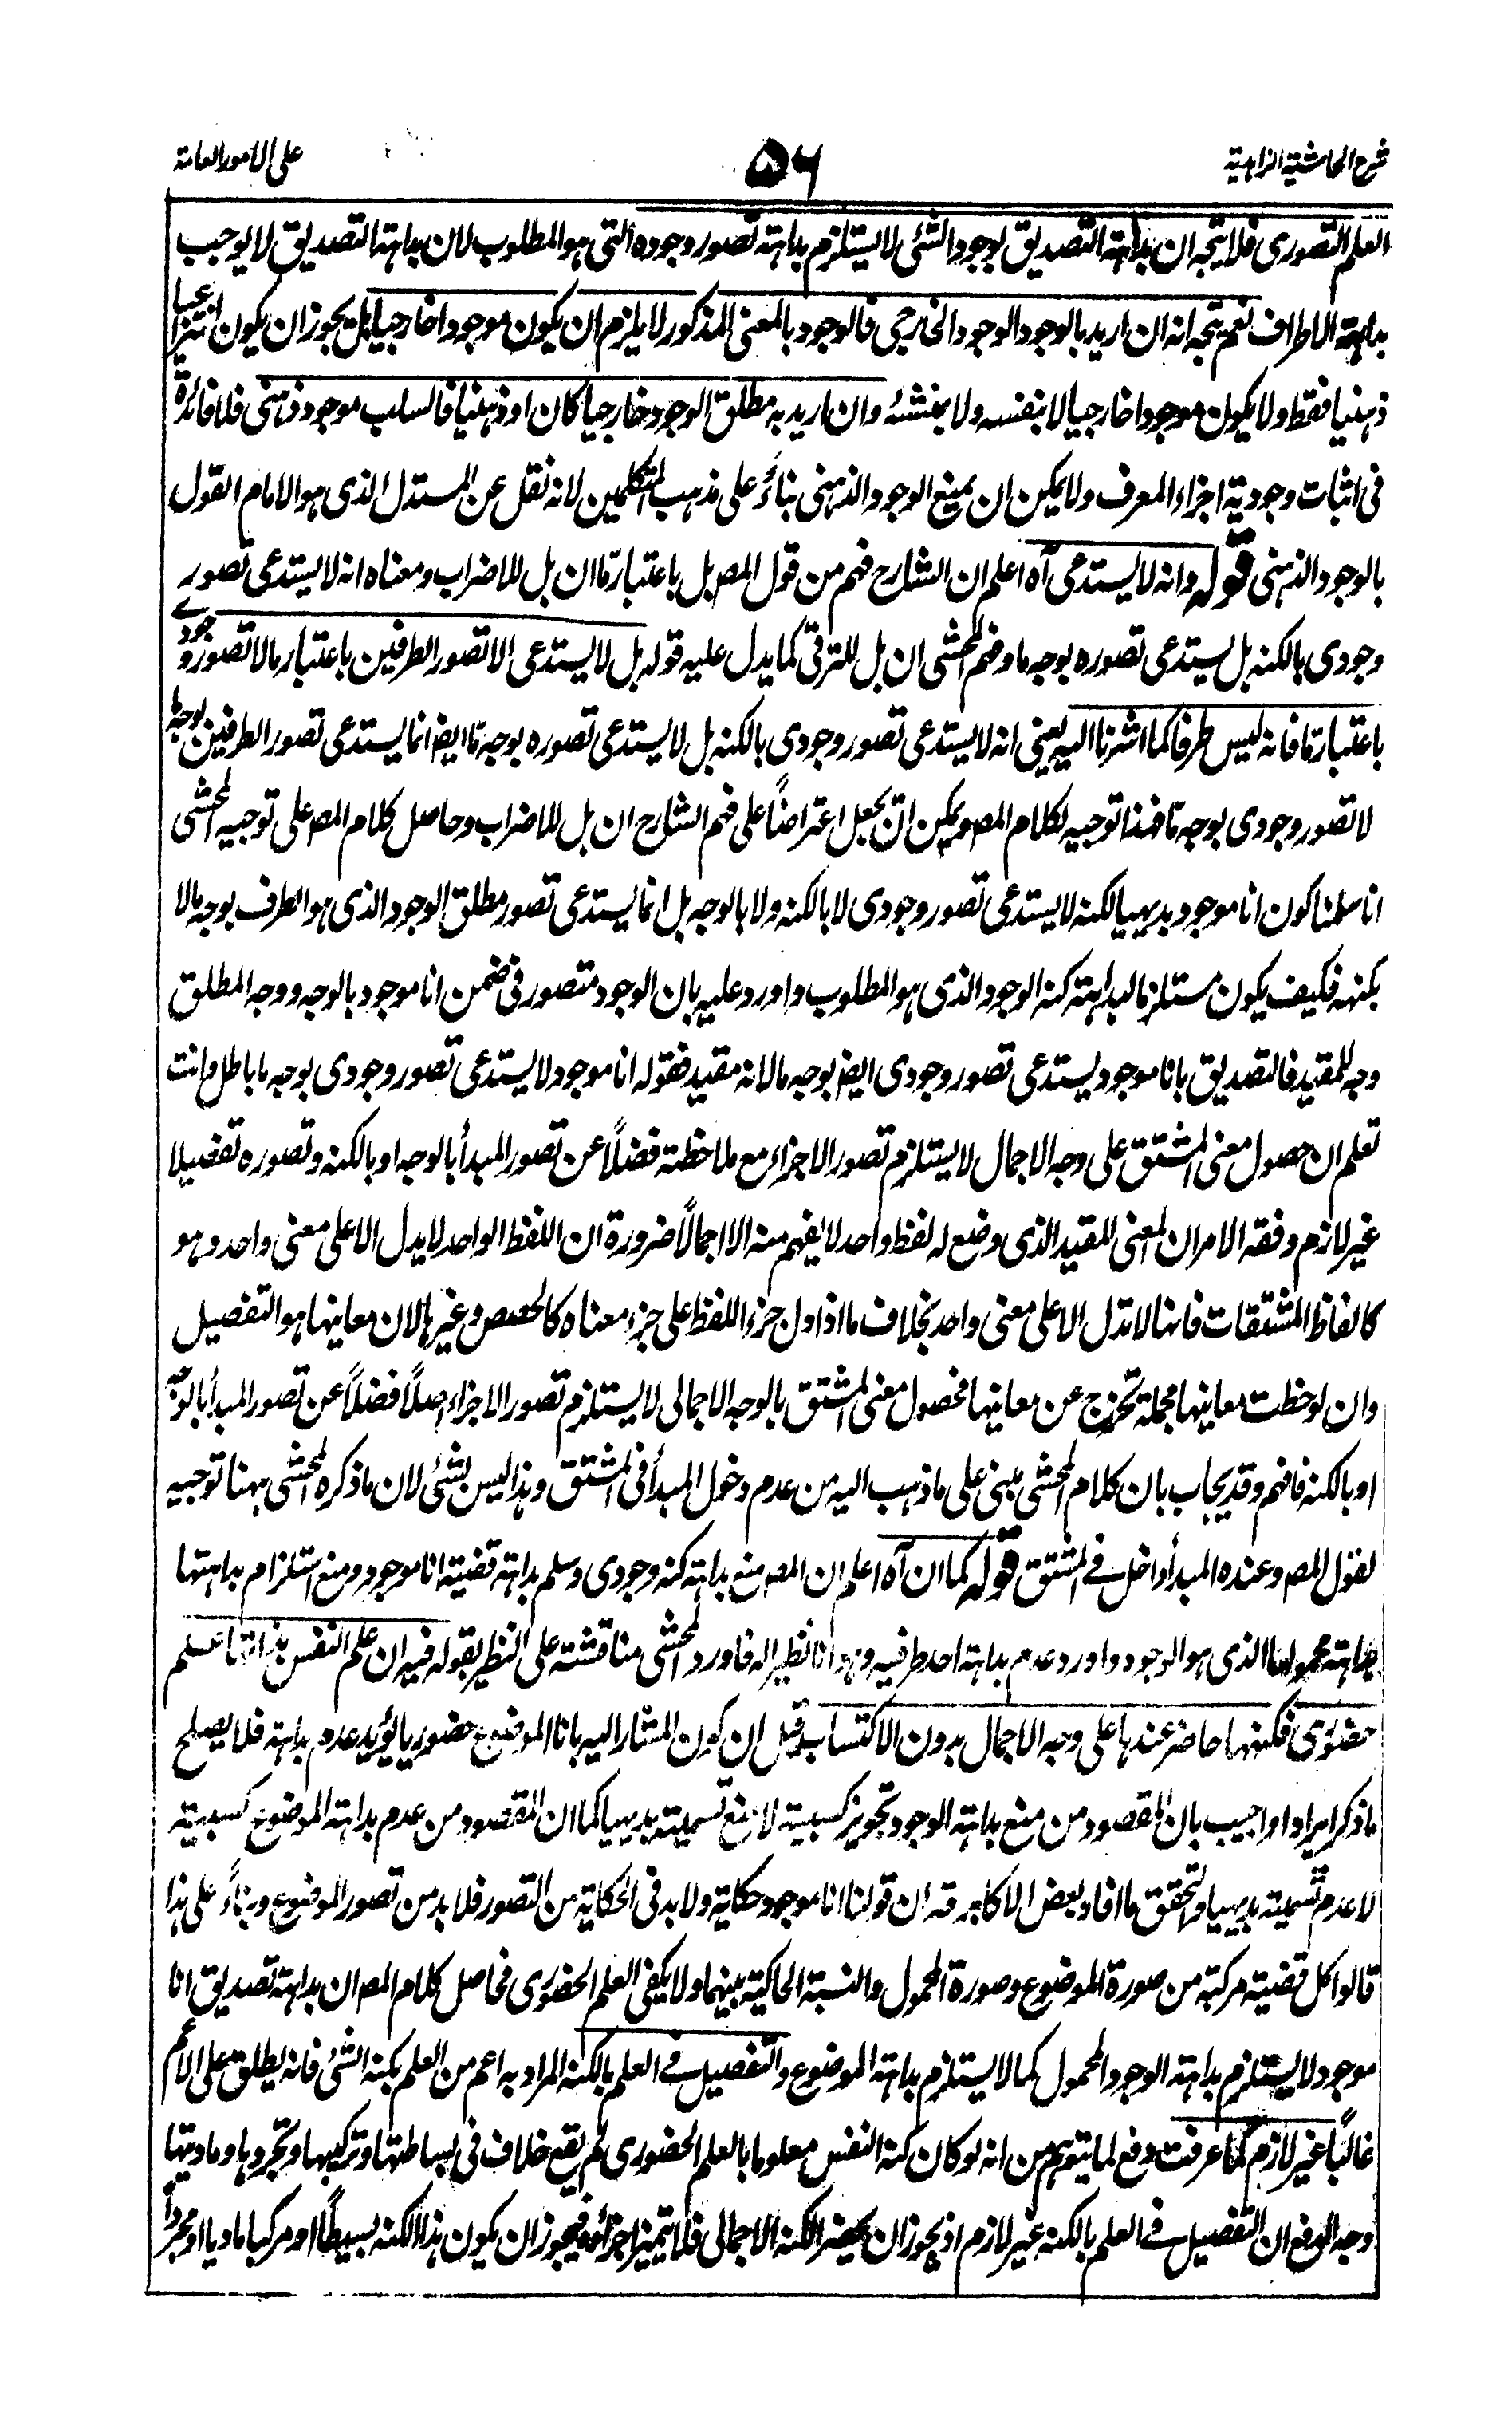 شرح الحاشية الزاهدية
٥٦
على الامور العامة
العلم التصورى فلا يتجه ان بداهته التصديق بوجود الشئ لا يستلزم بداهته تصور وجوده التى هو المطلوب لان بداهته التصديق لا يوجب
بداهته الاطراف نعم يتجه انه ان اريد بالوجود الوجود الخارجى فالوجود بالمعنى المذكور لا يلزم ان يكون موجودا خارجيا بل يجوز ان يكون انتزاعيا
ذهنيا فقط ولا يكون موجودا خارجيا لا بنفسه ولا بمنشئه وان اريد به مطلق الوجود خارجيا كان او ذهنيا فالسلب موجود ذهنى فلا فائدة
فى اثبات وجودية اجزاء المعرف ولا يمكن ان يمنع الوجود الذهنى بناءً على مذهب المتكلمين لانه نقل عن المستدل الذى هو الامام القول
بالوجود الذهنى قوله وانه لا يستدعى آه اعلم ان الشارح فهم من قول المص بل باعتبار ما ان بل للاضراب ومعناه انه لا يستدعى تصور
وجودى بالكنه بل يستدعى تصوره بوجه ما وفهم المحشى ان بل للترقى كما يدل عليه قوله بل لا يستدعى الا تصور الطرفين باعتبار ما لا تصور وجودے
باعتبار ما فانه ليس طرفا كما اشرنا اليه يعنى انه لا يستدعى تصور وجودى بالكنه بل لا يستدعى تصوره بوجه ما ايض انما يستدعى تصور الطرفين بوجه ما
لا تصور وجودى بوجه ما فهذا توجيه لكلام المص ويمكن ان يجعل اعتراضاً على فهم الشارح ان بل للاضراب وحاصل كلام المص على توجيه المحشى
انا سلمنا كون انا موجود بديهيا لكنه لا يستدعى تصور وجودى لا بالكنه ولا بالوجه بل انما يستدعى تصور مطلق الوجود الذى هو الطرف بوجه ما لا
بكنهه فكيف يكون مستلزما لبداهته كنه الوجود الذى هو المطلوب واورد عليه بان الوجود متصور فى ضمن انا موجود بالوجه ووجه المطلق
وجه للمقيد فالتصديق بانا موجود يستدعى تصور وجودى ايض بوجه ما لانه مقيد فقوله انا موجود لا يستدعى تصور وجودى بوجه ما باطل وانت
تعلم ان حصول معنى المشتق على وجه الاجمال لا يستلزم تصور الاجزاء مع ملاحظته فضلاً عن تصور المبدأ بالوجه او بالكنه وتصوره تفصيلا
غير لازم وفقه الامر ان المعنى المقيد الذى وضع له لفظ واحد لا يفهم منه الا اجمالاً ضرورة ان اللفظ الواحد لا يدل الا على معنى واحد وهو
كالفاظ المشتقات فانها لا تدل الا على معنى واحد بخلاف ما اذا دل جزء اللفظ على جزء معناه كالحصص وغيرها لان معاينها هو التفصيل
وان لوحظت معاينها مجملة تخرج عن معاينها فحصول معنى المشتق بالوجه الاجمالى لا يستلزم تصور الاجزاء اصلاً فضلاً عن تصور المبدأ بالوجه
او بالكنه فافهم وقد يجاب بان كلام المحشى مبنى على ما ذهب اليه من عدم دخول المبدأ فى المشتق وهذا ليس بشئ لان ما ذكره المحشى ههنا توجيه
لقول المص وعنده المبدأ داخل فے المشتق قوله كما ان آه اعلم ان المص منع بداهته كنه وجودى وسلم بداهته قضيته انا موجود ومنع استلزام بداهتها
بداهته محمولها الذى هو الوجود واورد عدم بداهته احد طرفيه وهو انا نظيرا له فاورد المحشى مناقشته على النظير بقوله فيه ان علم النفس بذاتها علم
حضورى فكنهها حاضر عندها على وجه الاجمال بدون الاكتساب قيل ان كون المشار اليه بانا الموضوع حضوريا يؤيد عدم بداهته فلا يصلح
ما ذكر ايرادا واجيب بان المقصود من منع بداهته الوجود تجويز كسبيته لا منع تسميته بديهيا كما ان المقصود من عدم بداهته الموضوع كسبيته
لا عدم تسميته بديهيا والتحقق ما افاد بعض الاكابر قه ان قولنا انا موجود حكاية ولا بد فى الحكاية من التصور فلا بد من تصور الموضوع وبناءً على هذا
قالوا كل قضيته مركبة من صورة الموضوع وصورة المحمول والنسبة الحاكية بينهما ولا يكفى العلم الحضورى فحاصل كلام المص ان بداهته تصديق انا
موجود لا يستلزم بداهته الوجود المحمول كما لا يستلزم بداهته الموضوع والتفصيل فے العلم بالكنه المراد به اعم من العلم بكنه الشئ فانه يطلق على الاعم
غالباً غير لازم كما عرفت دفع لما يتوهم من انه لو كان كنه النفس معلوما بالعلم الحضورى لم يقع خلاف فى بساطتها وتركيبها وتجردها وماديتها
وجه الدفع ان التفصيل فے العلم بالكنه غير لازم اذ يجوز ان يحضر الكنه الاجمالى فلا يتميز اجزائه فيجوز ان يكون هذا الكنه بسيطاً او مركبا ماديا او مجرداً